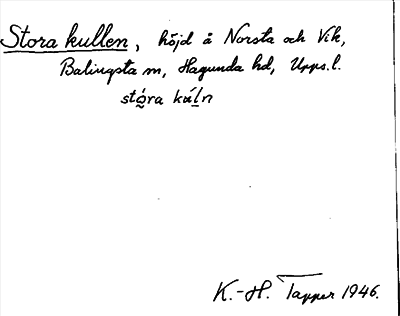 Stora kullen, höjd å Norsta och Vik,
Balingsta sn, Hagunda hd, Upps. l.
stó̰ra kúl̲n
K.-H. Tapper 1946.